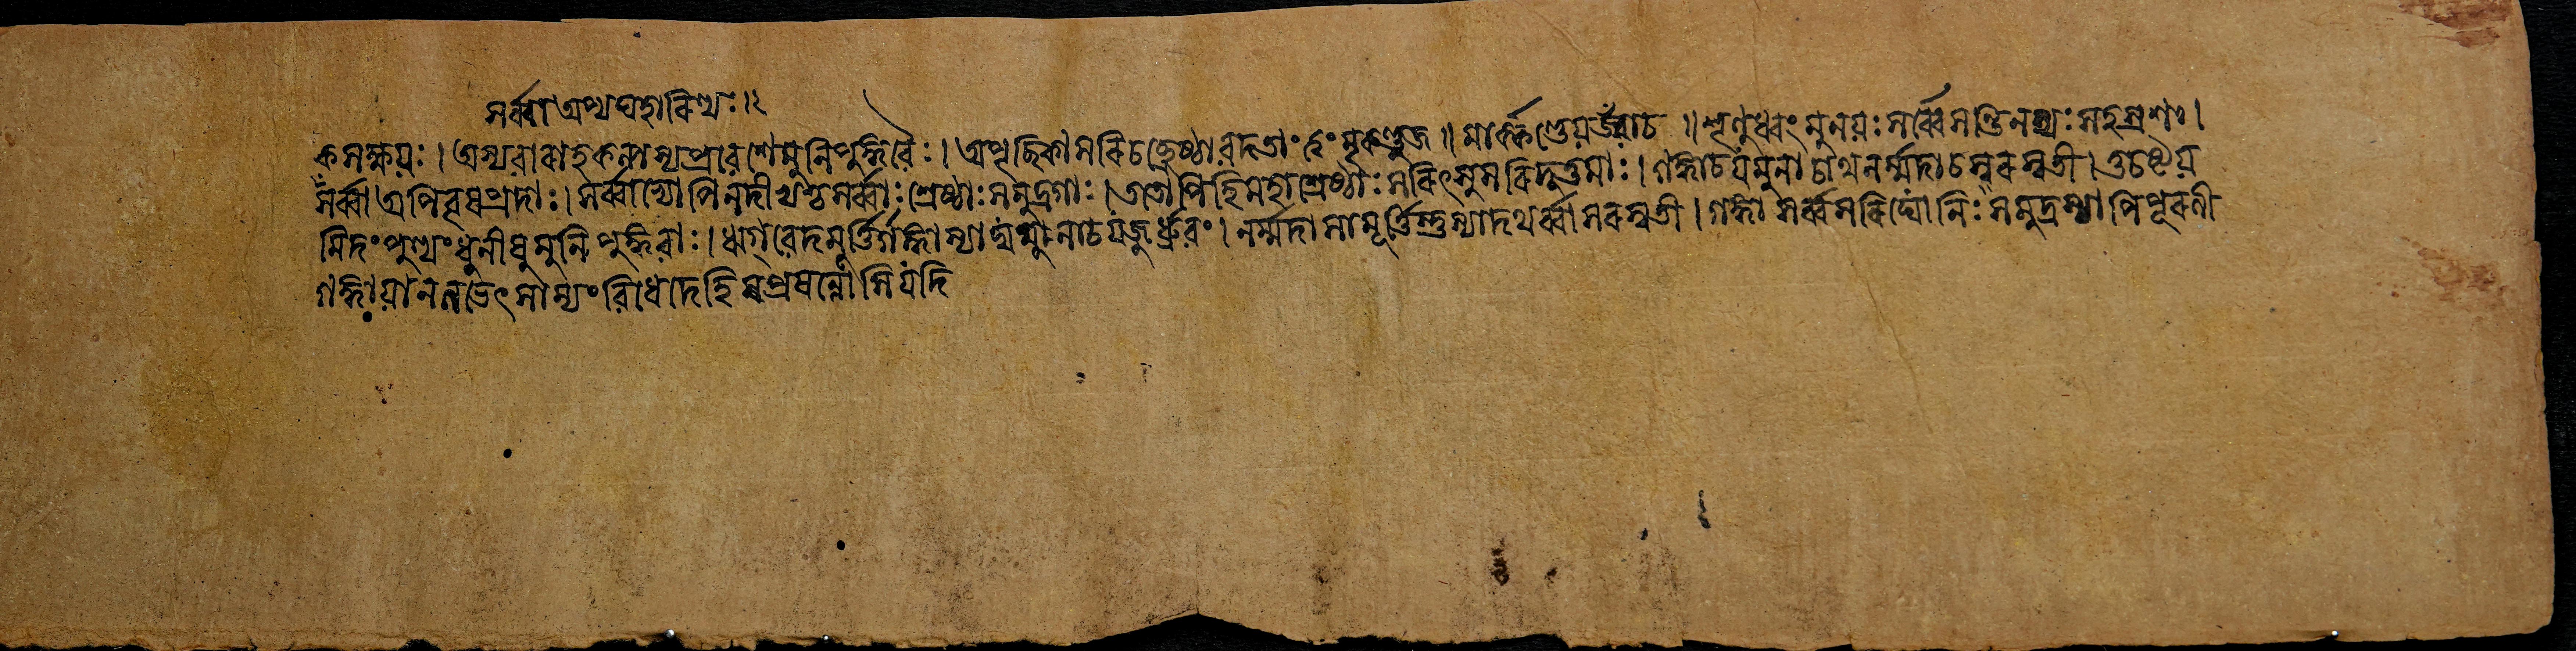 সর্ব্বা অপ্যঘহারিণ্যঃ ।২
কসঙ্ক্ষয়ঃ । অস্যবারাহকল্পস্যপ্রবেশেমুনিপুঙ্গবৈঃ । অপৃচ্ছিকাসরিচ্ছ্রেষ্ঠাবদতাং ত্বং মৃকণ্ডুজ ॥ মার্কণ্ডেয়উবাচ ॥ শৃণুধ্বং মুনয়ঃ সর্ব্বেসন্তিনদ্যঃ সহস্রশঃ ।
সর্ব্বা অপিবৃষপ্রদাঃ । সর্ব্বাভ্যোপিনদীভ্যশ্চসর্ব্বাঃ শ্রেষ্ঠাঃ সমুদ্রগাঃ । ততোপিহিমহাশ্রেষ্ঠাঃ সরিৎসুসরিদুত্তমাঃ । গঙ্গাচযমুনাচাথনর্ম্মদাচসরস্বতী । চতুষ্টয়
মিদং পুণ্যং ধুনীষুমুনিপুঙ্গবাঃ । ঋগ্বেদমূর্ত্তির্গঙ্গাস্যাদ্যমুনাচযজুর্ধ্রুবং । নর্ম্মদাসামমূর্ত্তিস্তুস্যাদথর্ব্বাসরস্বতী । গঙ্গাসর্ব্বসরিদ্যোনিঃ সমুদ্রস্যাপিপূরণী
গঙ্গায়ানলভেৎসাম্যং বিধেদেহিসুপ্রসন্নোসিযদি